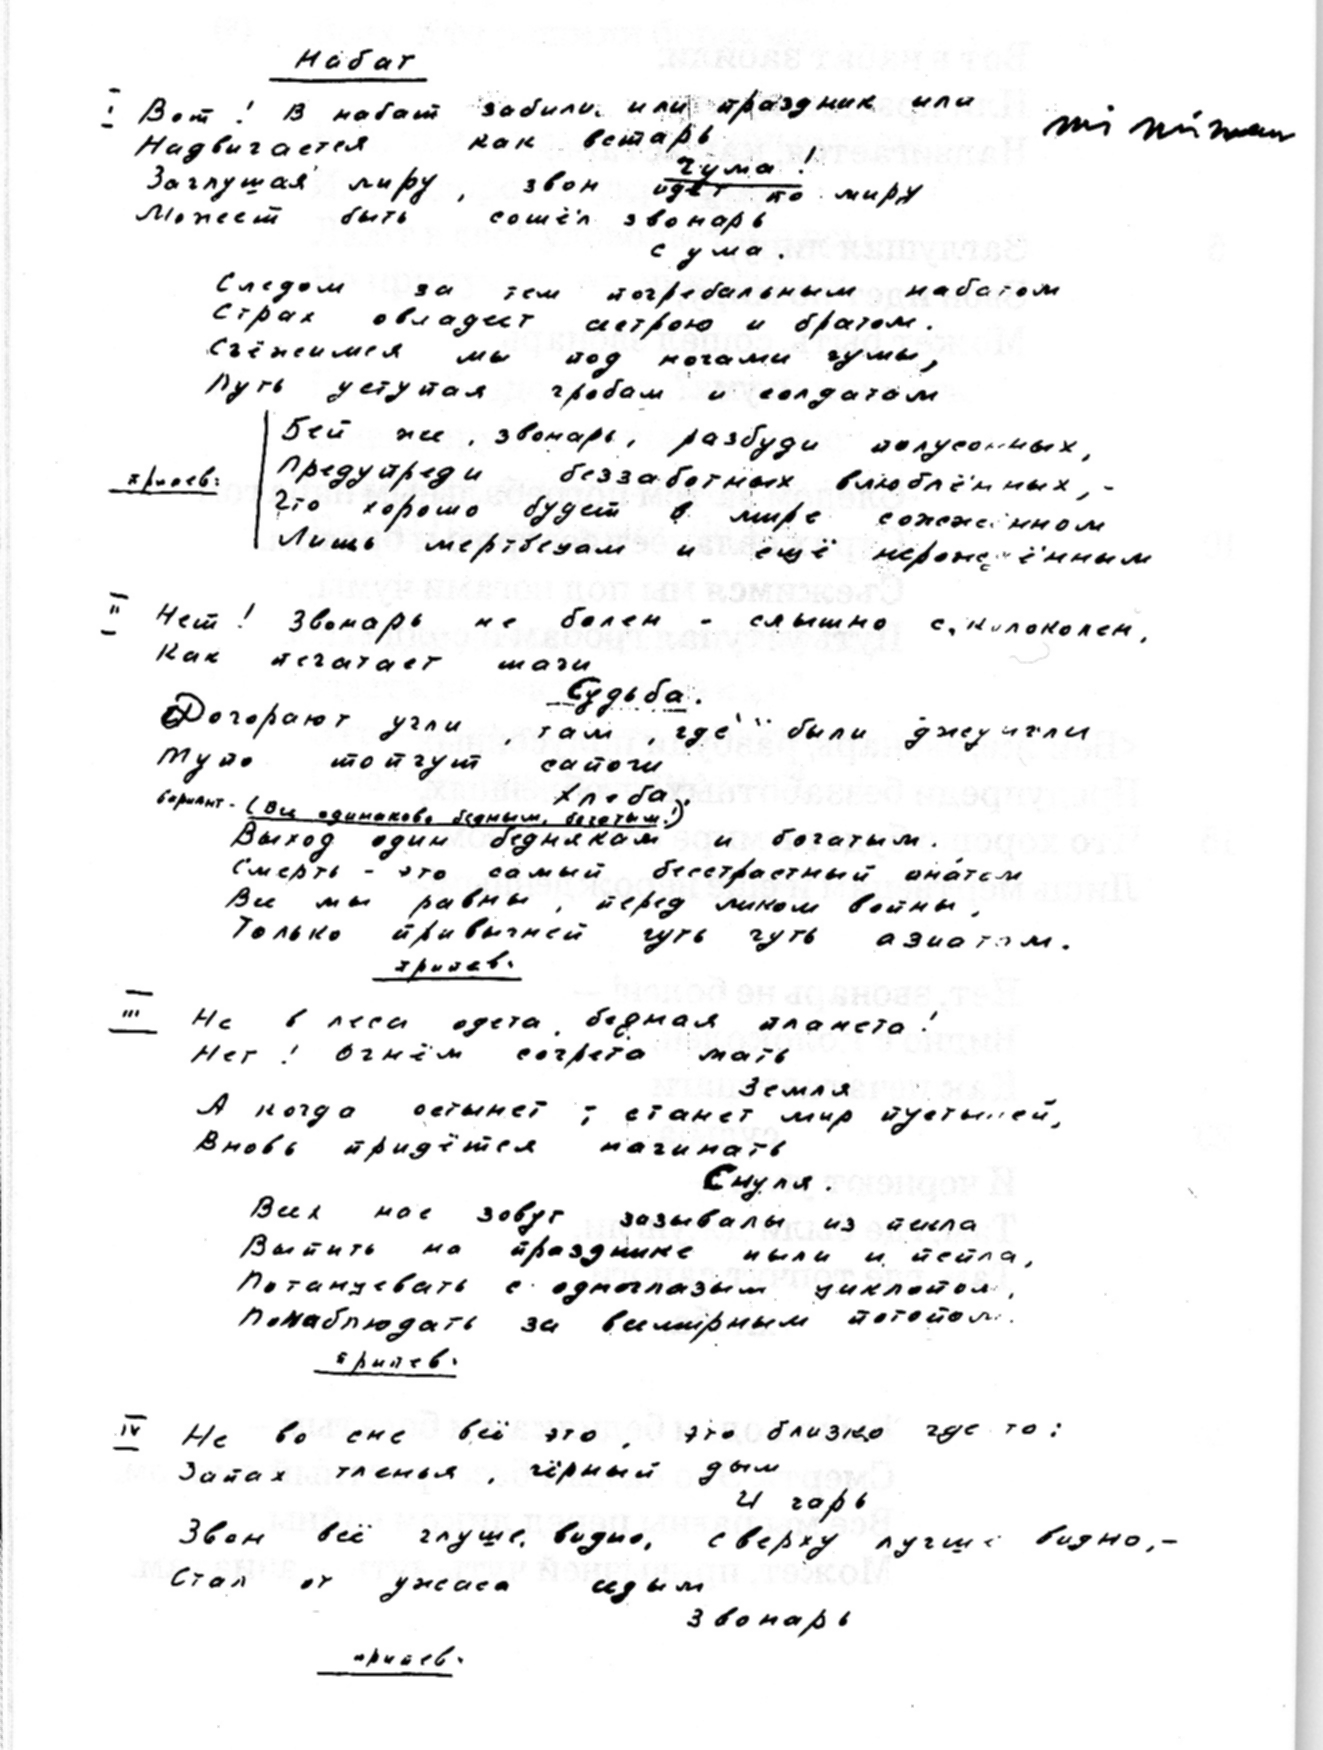 Набат
I Вот! В набат забили. или праздник или
Надвигается как встарь
чума!
Заглушая лиру, звон идёт по миру
Может быть сошёл звонарь
с ума.
Следом за тем погребальным набатом
Страх овладеет сестрою и братом.
Съёжимся мы под ногами чумы,
Путь уступая гробам и солдатам
Бей же, звонарь, разбуди полусонных,
припев: Предупреди беззаботных влюблённых,-
Что хорошо будет в мире сожжённом
Лишь мертвецам и ещё нерождённым
II Нет! Звонарь не болен - слышно с колоколен,
Как печатает шаги
Судьба.
Догорают угли, там, где были джунгли
Тупо топчут сапоги
хлеба.
вариант - (Все одинаково бедным, богатым!)
Выход один беднякам и богатым.
Смерть - это самый бесстрастный анатом
Все мы равны, перед ликом войны,
Только привычней чуть чуть азиатам.
припев.
III Не в леса одета, бедная планета!
Нет! Огнём согрета мать
Земля
А когда остынет, - станет мир пустыней,
Вновь придётся начинать
С нуля.
Всех нас зовут зазывалы из пекла
Выпить на празднике пыли и пепла,
Потанцевать с одноглазым циклопом,
Понаблюдать за всемирным потопом.
припев.
IV Не во сне всё это, это близко где то:
Запах тленья, чёрный дым
И гарь
Звон всё глуше, видно, сверху лучше видно,-
Стал от ужаса седым
Звонарь
припев.